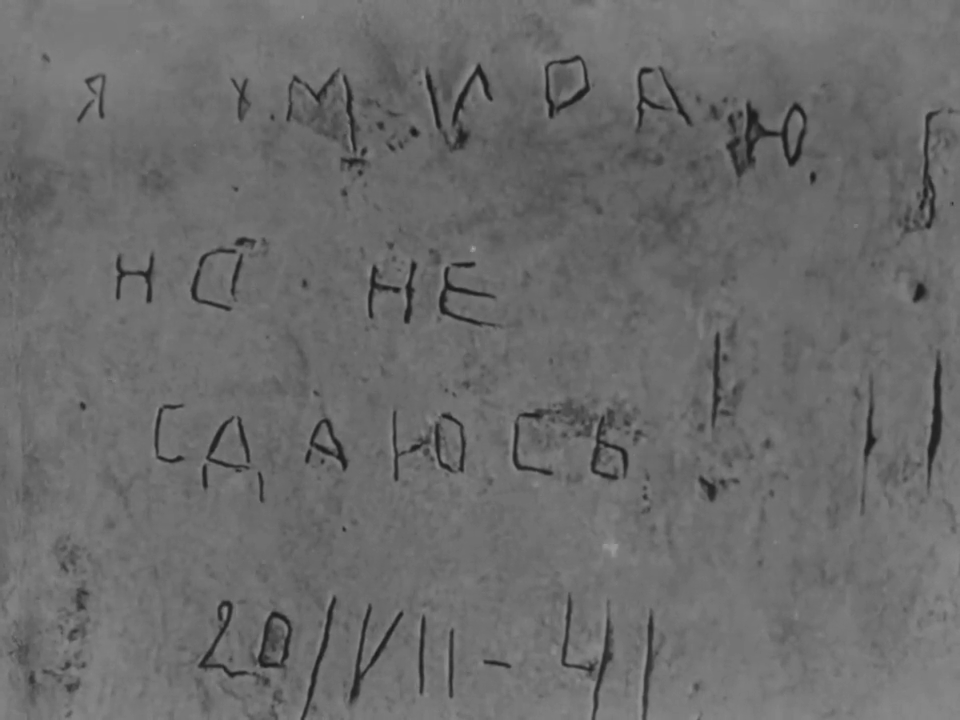 Я УМИРАЮ
НО НЕ
СДАЮСЬ!
20/VII-41